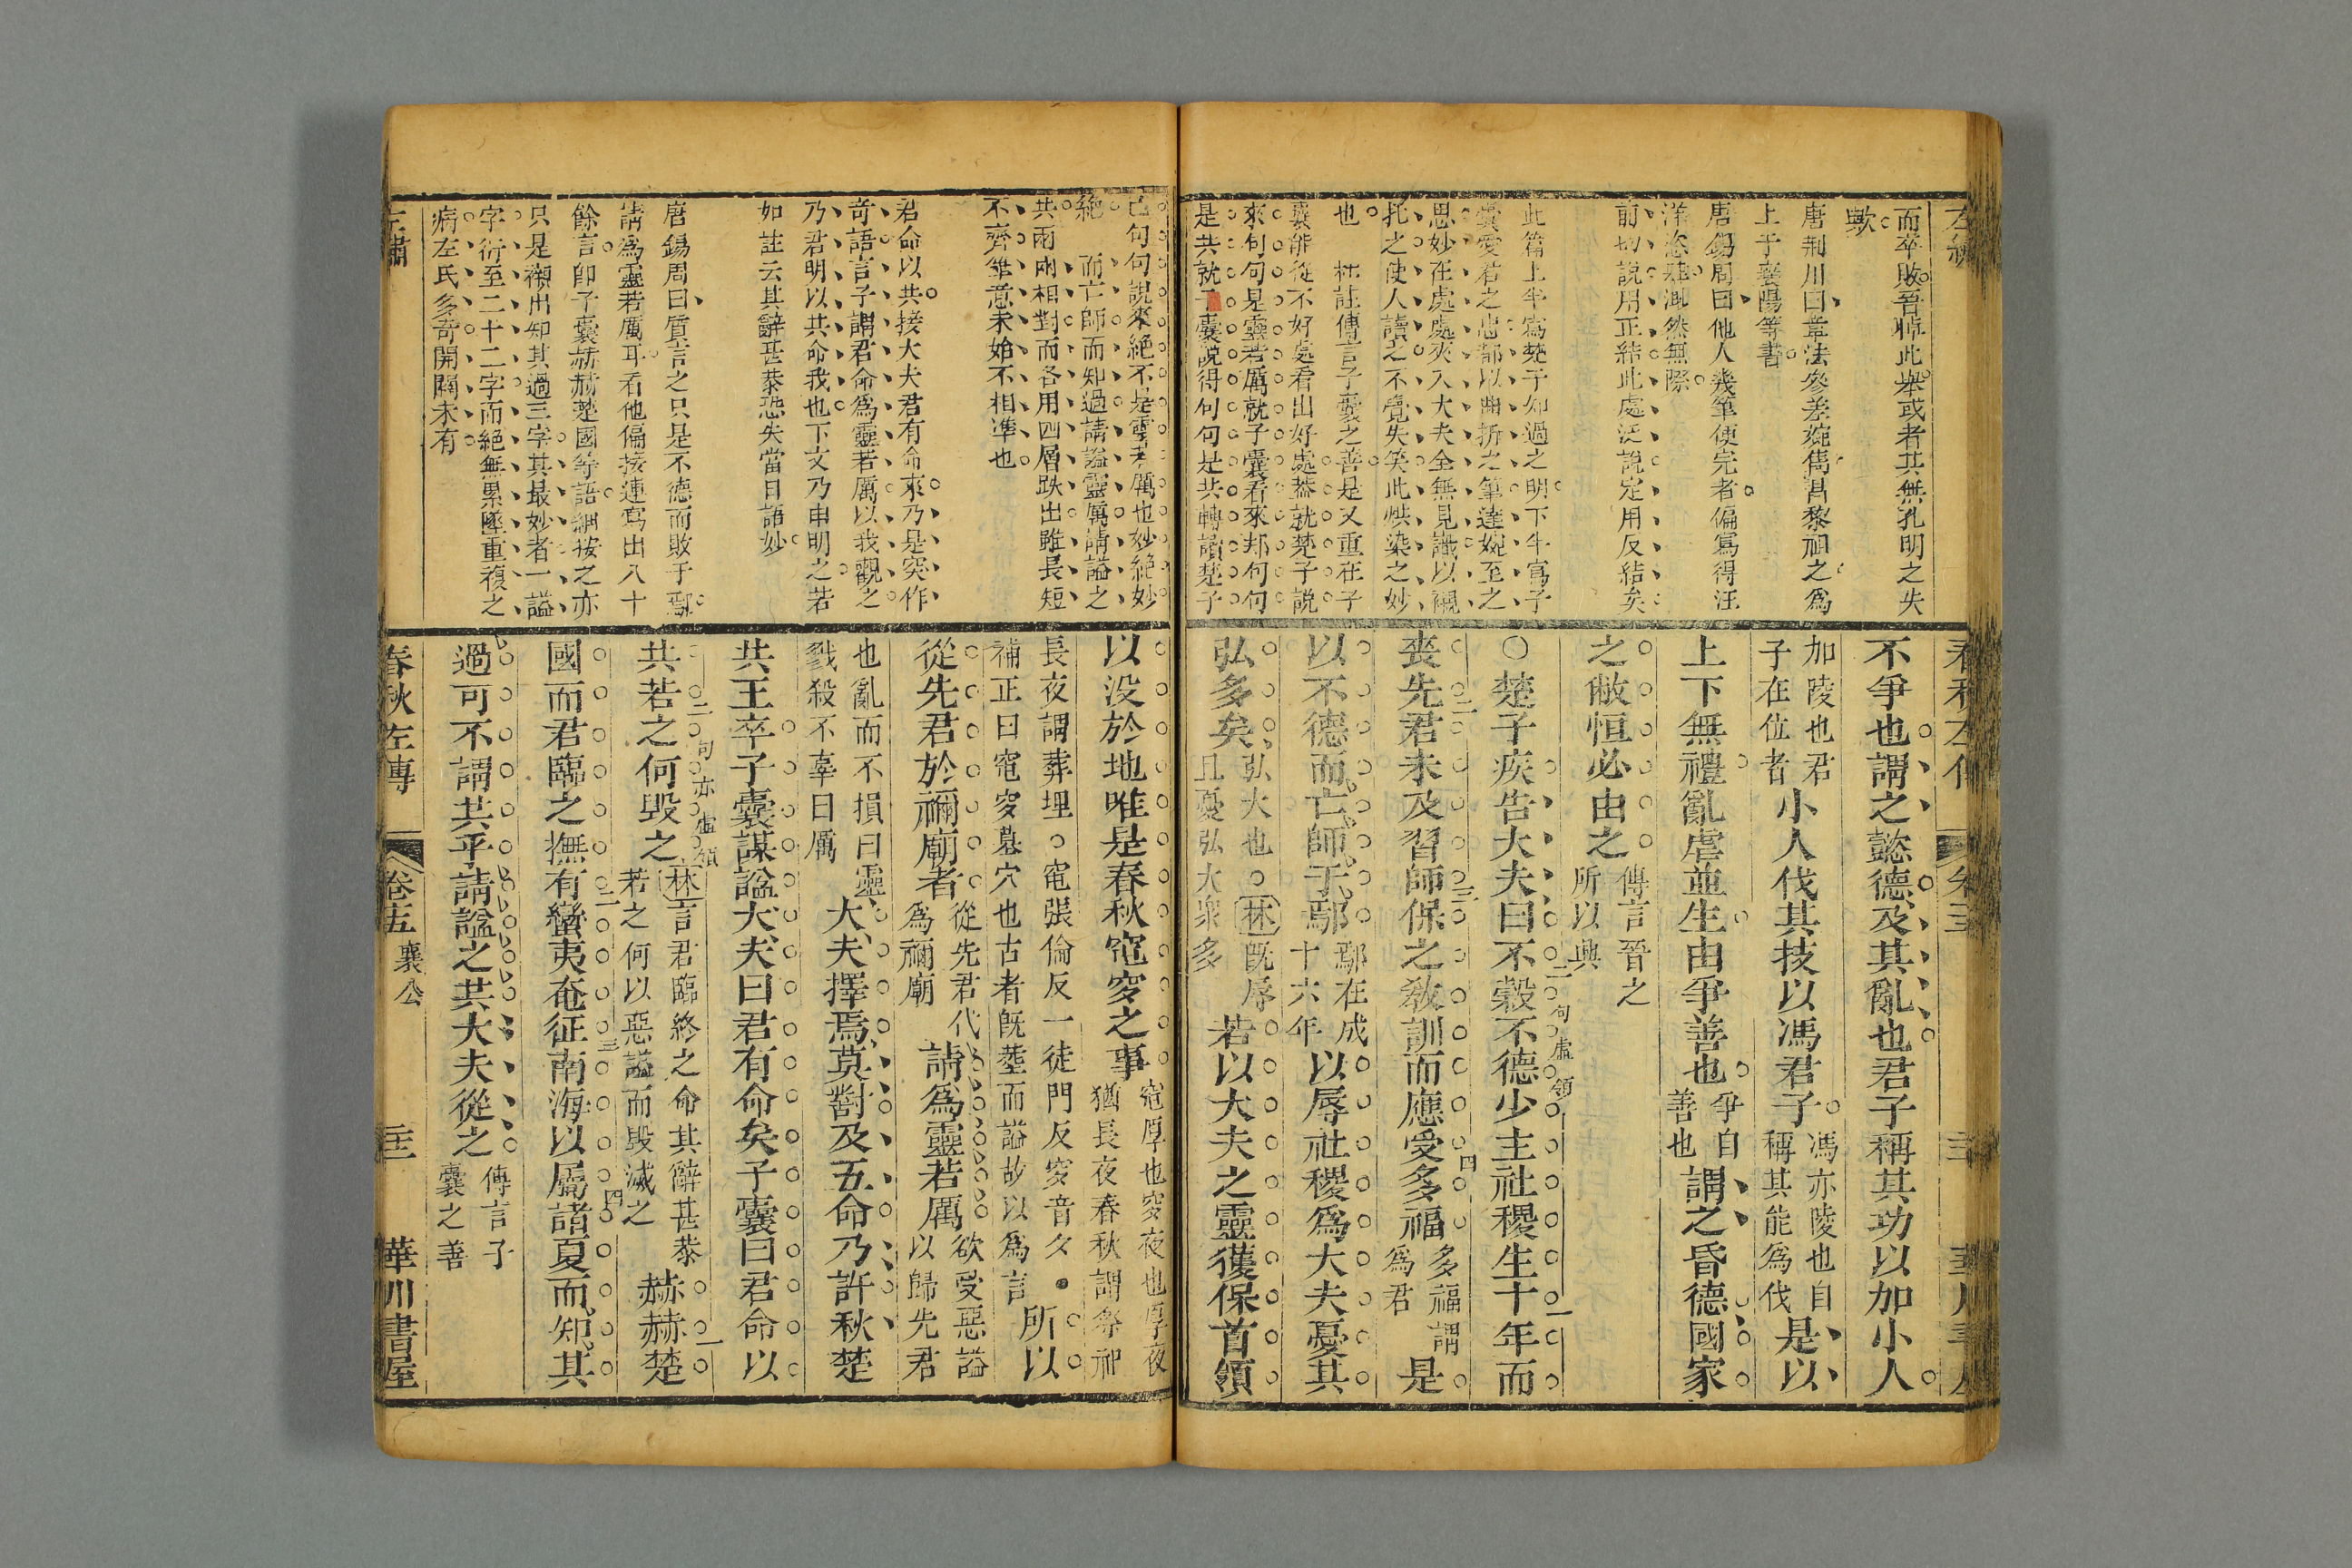 而卒敗吾悼此舉或者其無孔明之失
歟
唐荆川曰章法參差婉雋呂黎祖之爲
上于襄陽等書
唐錫周曰他人幾筆便完者偏寫得汪
洋恣肆淵然無際
前切說用正結此處泛說定用反結矣
此篇上半寫楚子知過之明下半寫子
囊愛君之忠都以幽折之筆達婉至之
思妙在處處夾入大夫全無見識以襯
托之使人讀之不覺失笑此烘染之妙
也 林註傳言子囊之善是又重在子
囊能從不好處看出好處葢就楚子說
來句句是靈若厲就子囊看來却句句
是共就子囊說得句句是共轉讀楚子
不爭也謂之懿德及其亂也君子稱其功以加小人
加陵也君
子在位者
小人伐其技以馮君子
馮亦陵也自
稱其能爲伐
是以
上下無禮亂虐並生由爭善也
爭自
善也
謂之昏德國家
之敝恒必由之
傳言晉之
所以興
○楚子疾告大夫曰不榖不德少主社稷生十年而
二句虛領
一
喪先君未及習師保之敎訓而應受多福
多福謂
爲君
是
二
三
四
以不德而亡師于鄢
鄢在成
十六年
以辱社稷爲大夫憂其
弘多矣
弘大也○林旣辱
且憂弘大衆多
若以大夫之靈獲保首領
己句句說來絕不是靈若厲也妙絕妙
絕 而亡師而知過請謚靈厲請謚之
共兩兩相對而各用四層跌出雖長短
不齊筆意未始不相準也
君命以共接大夫君有命來乃是突作
奇語言子謂君命爲靈若厲以我觀之
乃君明以共命我也下文乃申明之若
如註云其辭甚恭恐失當日語妙
唐錫周曰質言之只是不德而敗于鄢
請爲靈若厲耳看他偏接連寫出八十
餘言卽子囊赫赫楚國等語細按之亦
只是襯出知其過三字其最妙者一謚
字衍至二十二字而絕無累墜重複之
病左氏多奇開闢未有
以没於地唯是春秋窀穸之事
窀厚也穸夜也厚夜
猶長夜春秋謂祭祀
長夜謂葬埋○窀張倫反一徒門反穸音夕●
補正曰窀穸墓穴也古者旣葬而謚故以爲言
所以
從先君於禰廟者
從先君代
爲禰廟
請爲靈若厲
欲受惡謚
以歸先君
也亂而不損曰靈
戮殺不辜曰厲
大夫擇焉莫對及五命乃許秋楚
共王卒子囊謀謚大夫曰君有命矣子囊曰君命以
共若之何毀之
林言君臨終之命其辭甚恭
若之何以惡謚而毀滅之
赫赫楚
二句亦虛領
一
國而君臨之撫有蠻夷奄征南海以屬諸夏而知其
二
三
四
過可不謂共乎請謚之共大夫從之
傳言子
囊之善
左繡
春秋左傳
卷十五
襄公
三十三
華川書屋